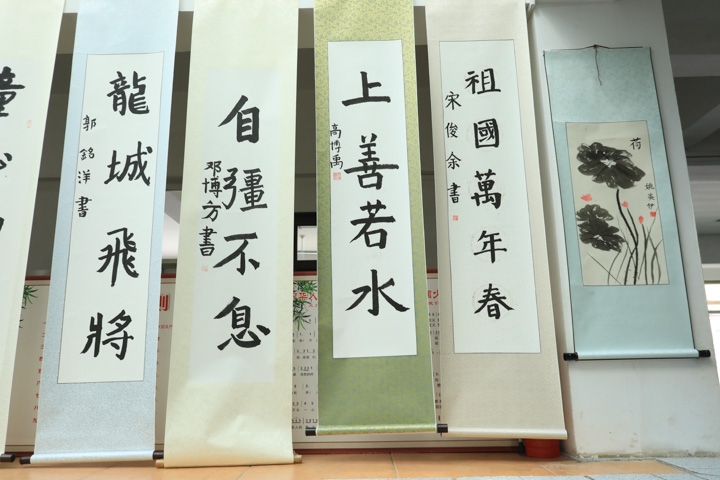 龍城飛將
郭銘洋書
自彊不息
邓博方書
上善若水
高博禹
祖國萬年春
宋俊余書
荷